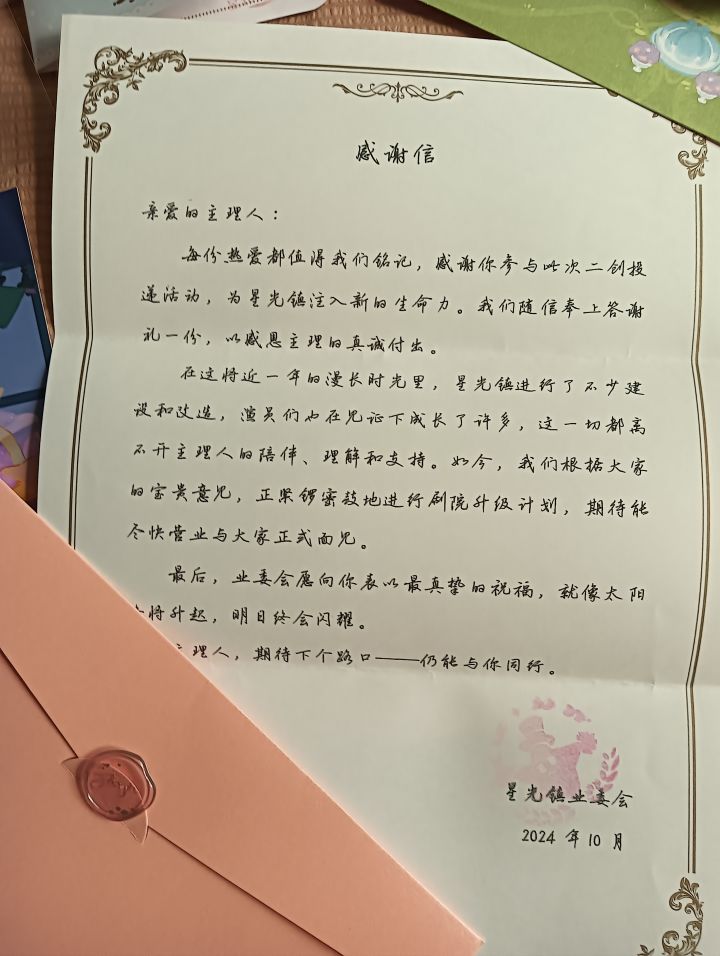 感谢信
亲爱的主理人：
每份热爱都值得我们铭记，感谢你参与此次二创投
递活动，为星光镇注入新的生命力。我们随信奉上答谢
礼一份，以感恩主理的真诚付出。
在这将近一年的漫长时光里，星光镇进行了不少建
设和改造，演员们也在见证下成长了许多，这一切都离
不开主理人的陪伴、理解和支持。如今，我们根据大家
的宝贵意见，正紧锣密鼓地进行剧院升级计划，期待能
尽快营业与大家正式面见。
最后，业委会愿向你表以最真挚的祝福，就像太阳
将升起，明日终会闪耀。
主理人，期待下个路口——仍能与你同行。
星光镇业委会
2024 年 10 月